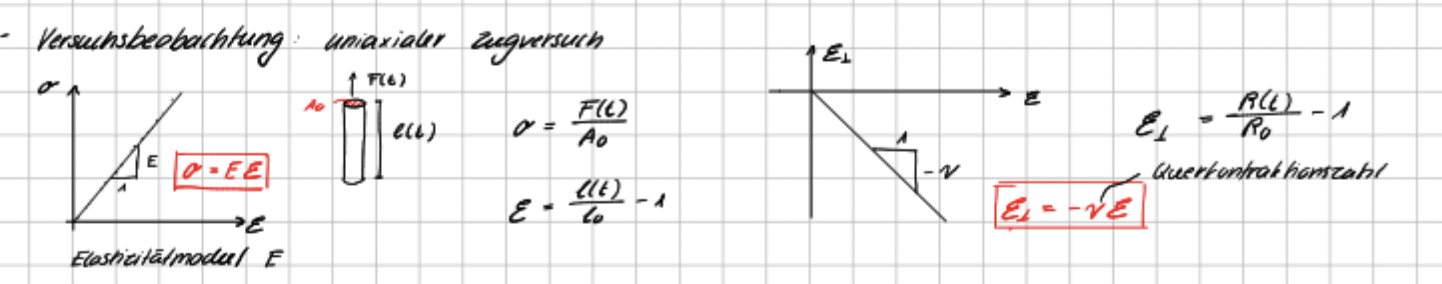 - Versuchsbeobachtung: uniaxialer Zugversuch
σ
E
1
σ = E ε
ε
Elastizitätmodul E
F(t)
A₀
l(t)
σ = F(t)/A₀
ε = l(t)/l₀ - 1
ε⊥
ε
1
-ν
ε⊥ = R(t)/R₀ - 1
Querkontraktionszahl
ε⊥ = -ν ε